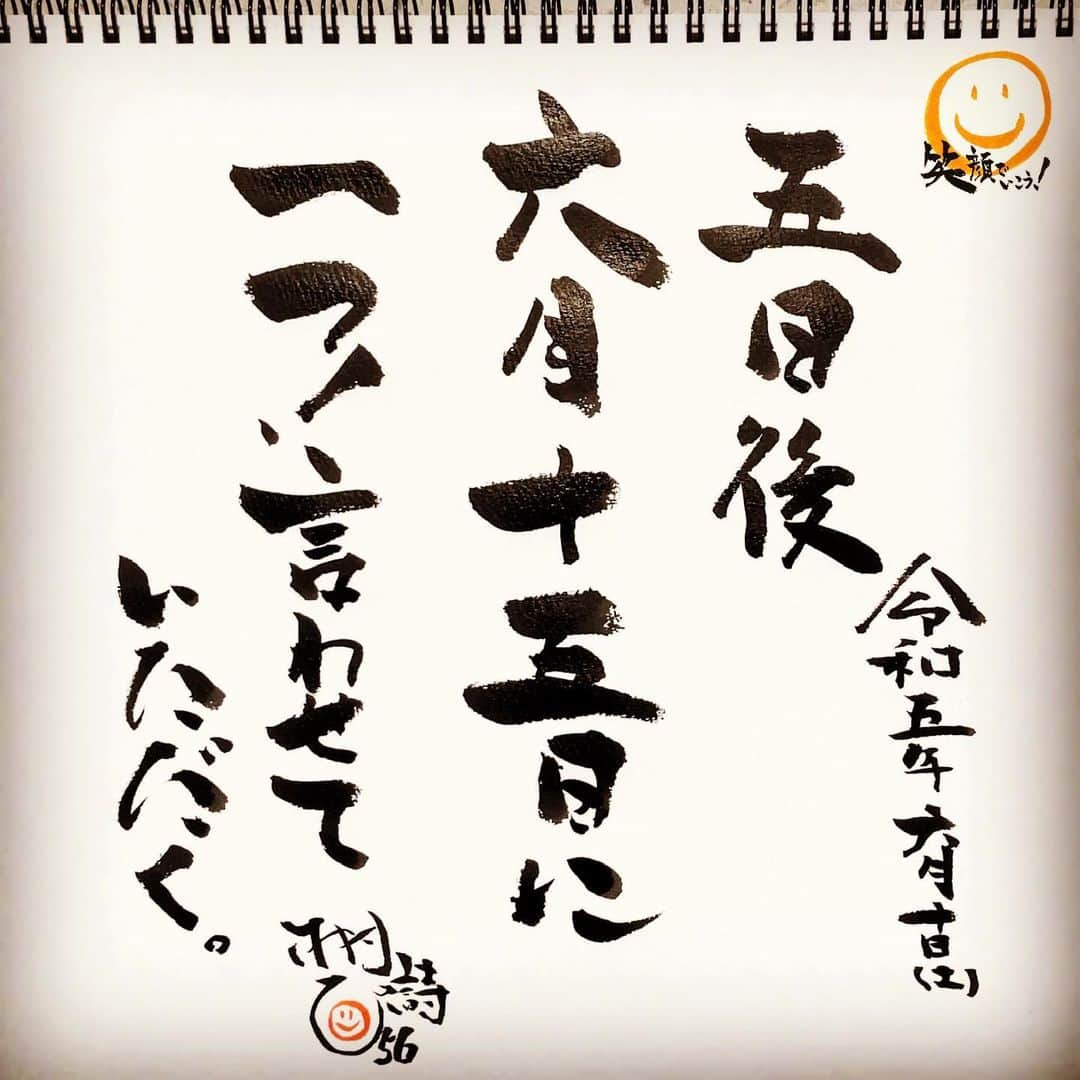 笑顔でいこう!
令和五年六月十日(土)
五日後
六月十五日に
一つ、言わせて
いただく。
56